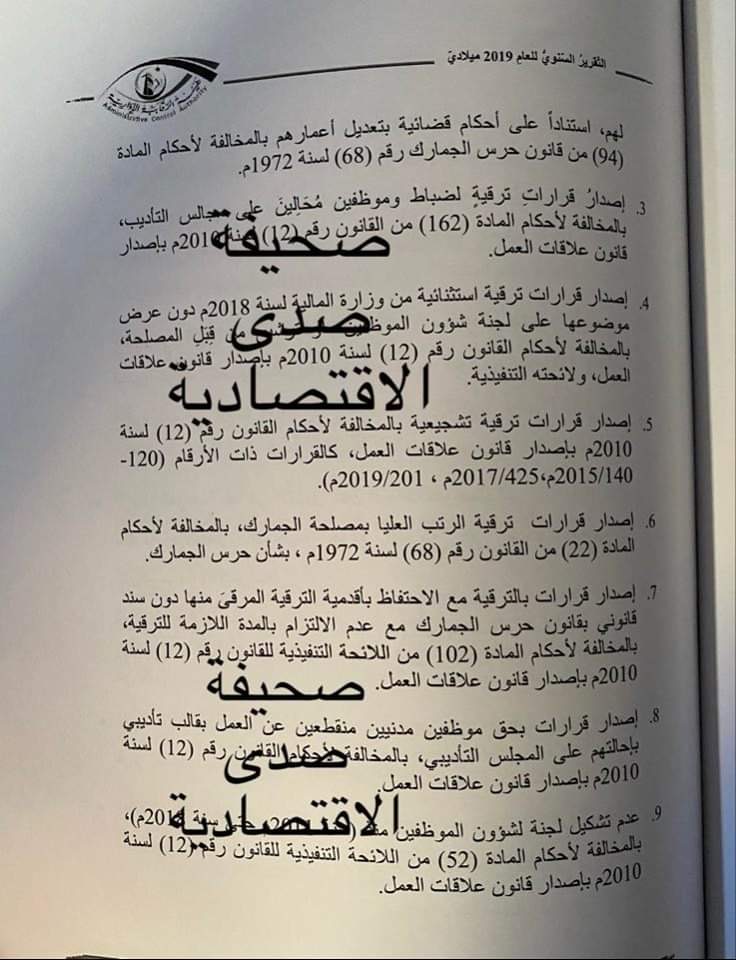 التقريرُ السّنويُّ للعام 2019 ميلاديّ
هيئة الرقابة الإدارية
Administrative Control Authority
لهم، استناداً على أحكام قضائية بتعديل أعمارهم بالمخالفة لأحكام المادة
(94) من قانون حرس الجمارك رقم (68) لسنة 1972م.
3. إصدارُ قراراتِ ترقيةٍ لضباط وموظفين مُحَالِينَ على مجالس التأديب،
بالمخالفة لأحكام المادة (162) من القانون رقم (12) لسنة 2010م بإصدار
قانون علاقات العمل.
صحيفة
4. إصدار قرارات ترقية استثنائية من وزارة المالية لسنة 2018م دون عرض
موضوعها على لجنة شؤون الموظفين من قِبَلِ المصلحة،
صدى
بالمخالفة لأحكام القانون رقم (12) لسنة 2010م بإصدار قانون علاقات
العمل، ولائحته التنفيذية.
الاقتصادية
5. إصدار قرارات ترقية تشجيعية بالمخالفة لأحكام القانون رقم (12) لسنة
2010م بإصدار قانون علاقات العمل، كالقرارات ذات الأرقام (120-
2015/140م،2017/425م ، 2019/201م).
6. إصدار قرارات ترقية الرتب العليا بمصلحة الجمارك، بالمخالفة لأحكام
المادة (22) من القانون رقم (68) لسنة 1972م ، بشأن حرس الجمارك.
7. إصدار قرارات بالترقية مع الاحتفاظ بأقدمية الترقية المرقىَ منها دون سند
قانوني بقانون حرس الجمارك مع عدم الالتزام بالمدة اللازمة للترقية،
بالمخالفة لأحكام المادة (102) من اللائحة التنفيذية للقانون رقم (12) لسنة
2010م بإصدار قانون علاقات العمل.
صحيفة
8. إصدار قرارات بحق موظفين مدنيين منقطعين عن العمل بقالب تأديبي
بإحالتهم على المجلس التأديبي، بالمخالفة لأحكام القانون رقم (12) لسنة
صدى
2010م بإصدار قانون علاقات العمل.
9. عدم تشكيل لجنة لشؤون الموظفين
الاقتصادية
بالمخالفة لأحكام المادة (52) من اللائحة التنفيذية للقانون رقم (12) لسنة
2010م بإصدار قانون علاقات العمل.